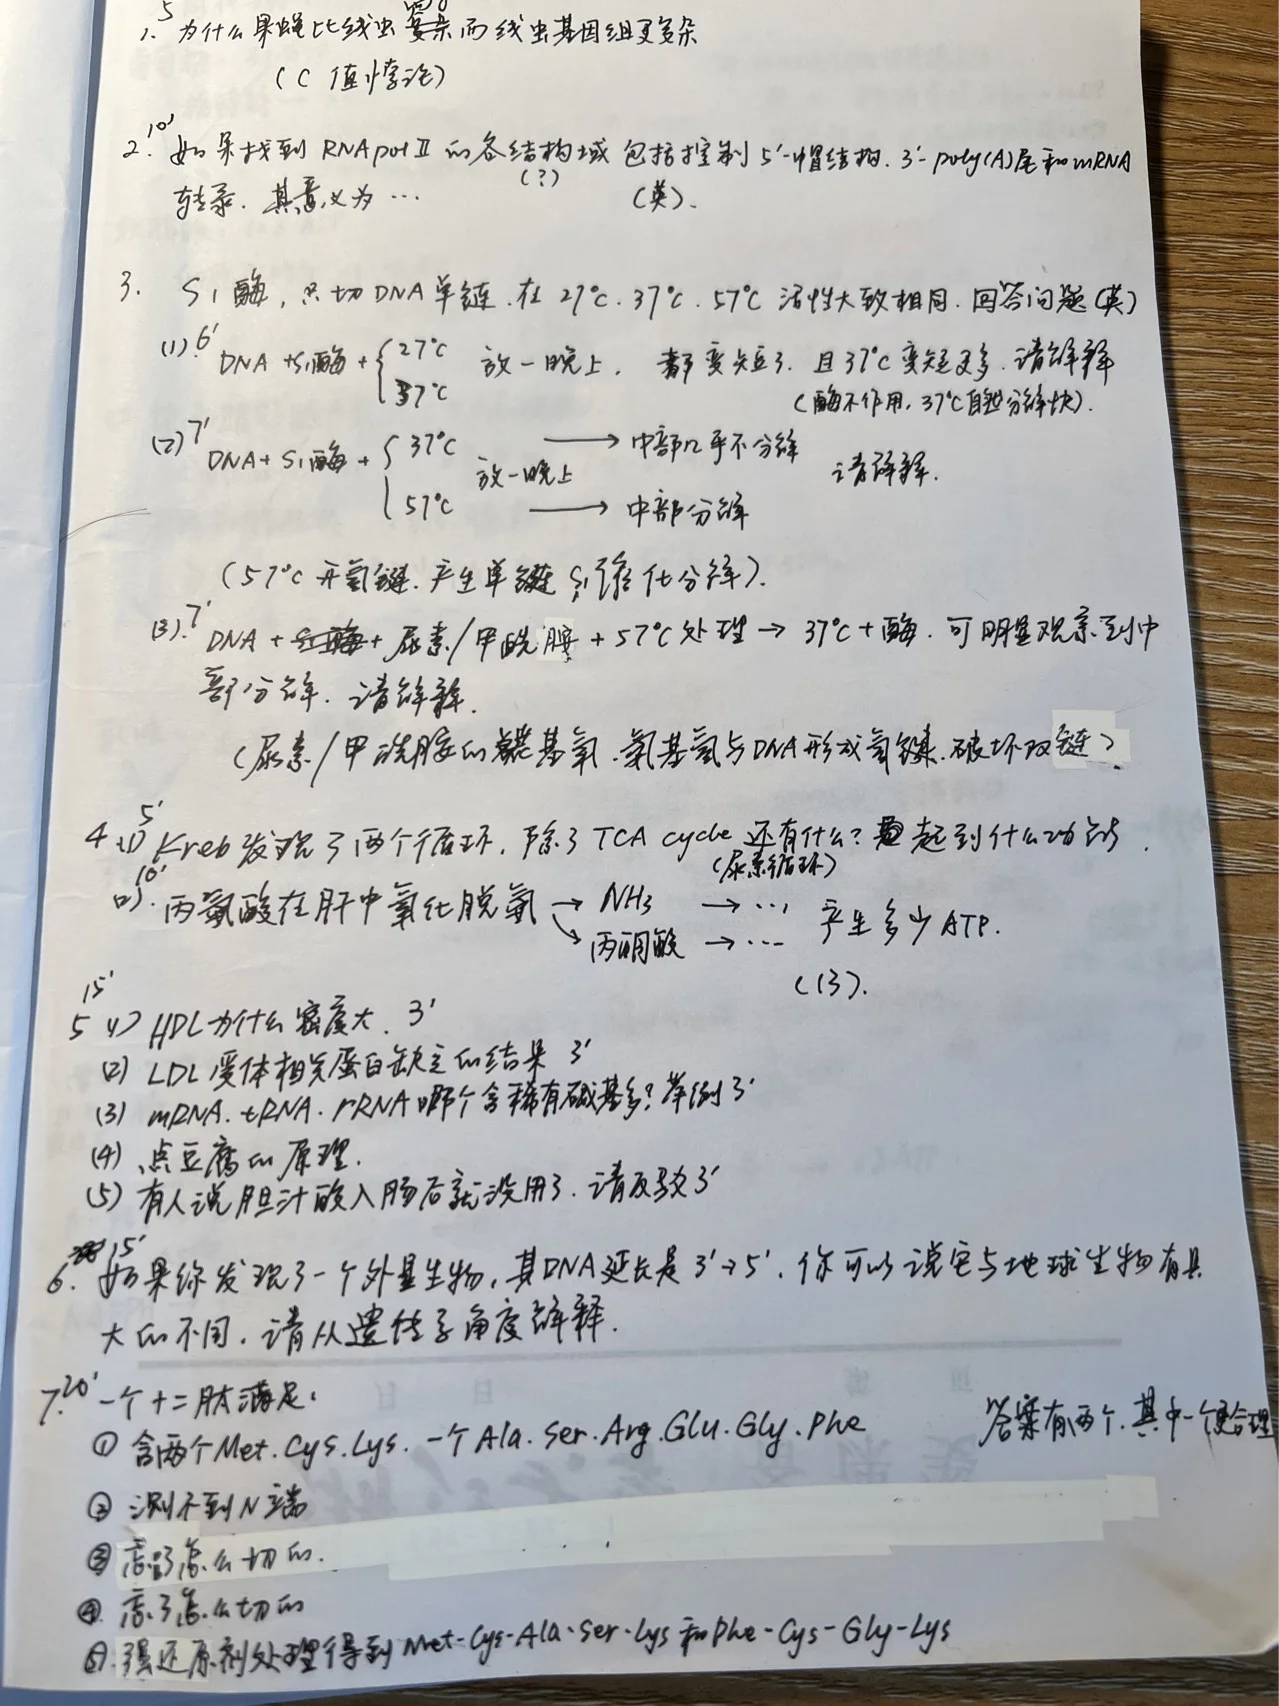 5
1. 为什么果蝇比线虫复杂而线虫基因组更复杂
(C 值悖论)
10'
2. 如果找到 RNA pol II 的各结构域 包括控制 5'-帽结构. 3'-poly(A)尾和mRNA
(?)
转录. 其意义为 … (英).
3. S1 酶, 只切DNA单链. 在 27℃. 37℃. 57℃ 活性大致相同. 回答问题(英)
(1) 6' DNA + S1酶 + { 27℃ 放一晚上, 都变短了. 且37℃变短更多. 请解释
37℃ (酶不作用, 37℃自然分解快).
(2) 7' DNA + S1酶 + { 37℃ 放一晚上 → 中部几乎不分解 请解释.
57℃ → 中部分解
(57℃开氢键. 产生单链 S1催化分解).
(3). 7' DNA + S1酶 + 尿素/甲酰胺 + 57℃处理 → 37℃ + 酶. 可明显观察到中
部分解. 请解释.
(尿素/甲酰胺的羰基氧. 氨基氢与DNA形成氢键. 破坏双链)
5'
4 (1) Kreb发现了两个循环, 除了 TCA cycle 还有什么? 起到什么功能.
(尿素循环)
10'
(2). 丙氨酸在肝中氧化脱氨 → NH3 → …, 产生多少 ATP.
丙酮酸 → …
(13).
15'
5 (1) HDL为什么密度大. 3'
(2) LDL受体相关蛋白缺乏的结果 3'
(3) mRNA. tRNA. rRNA 哪个含稀有碱基多? 举例 3'
(4) 点豆腐的原理.
(5) 有人说胆汁酸入肠后就没用了. 请反驳 3'
15'
6. 如果你发现了一个外星生物, 其DNA延长是 3'→5'. 你可以说它与地球生物有具
大的不同. 请从遗传学角度解释.
7. 20' 一个十二肽满足:
① 含两个Met. Cys. Lys. 一个Ala. Ser. Arg. Glu. Gly. Phe 答案有两个. 其中一个更合理
② 测不到N端
③ 忘了怎么切的.
④. 忘了怎么切的
⑤. 强还原剂处理得到 Met-Cys-Ala-Ser-Lys 和 Phe-Cys-Gly-Lys